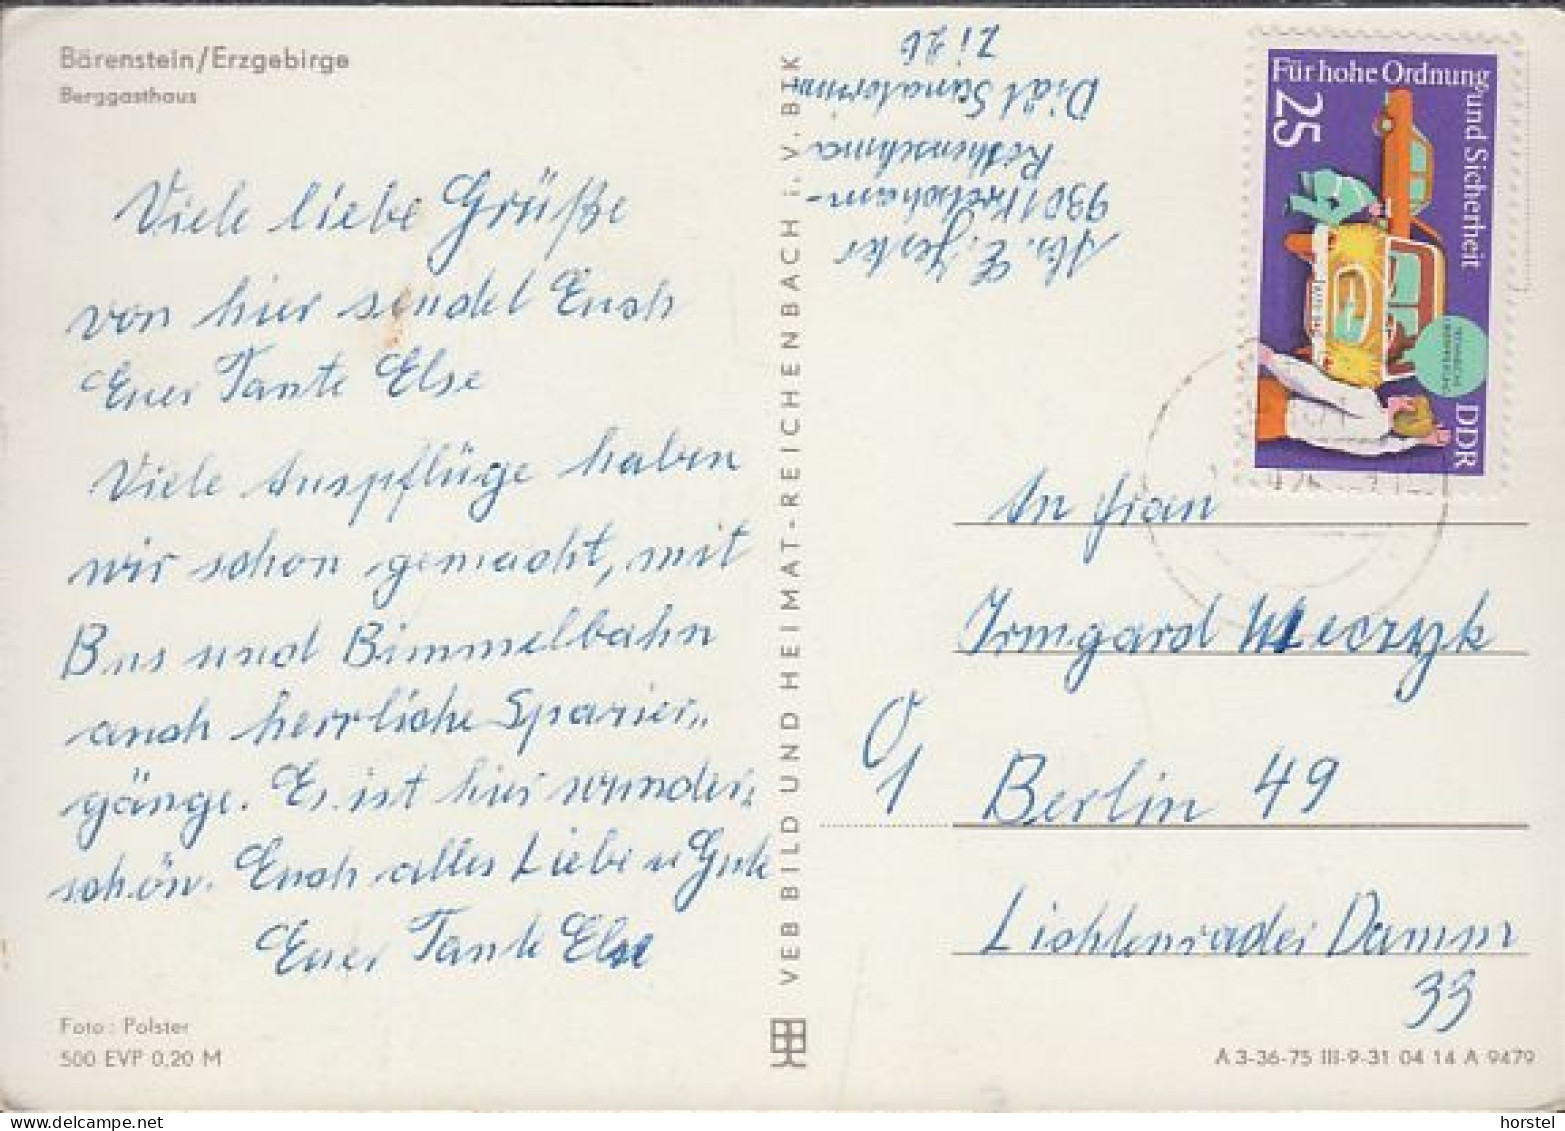 Bärenstein/Erzgebirge
Berggasthaus
Viele liebe Grüße
von hier sendet Euch
Euer Tante Else
Viele Auspflüge haben
wir schon gemacht, mit
Bus und Bimmelbahn
auch herrliche Spazier„
gänge. Es ist hier wunder„
schön. Euch alles Liebe u Gute
Euer Tante Else
Foto: Polster
500 EVP 0,20 M
VEB BILD UND HEIMAT-REICHENBACH i. V. BTK
Abs. E.
9301 Kretscham-
Rothensehma
Diät Sanatorium
Zi 26
Für hohe Ordnung und Sicherheit
25
DDR
An Frau
Irmgard
Berlin 49
Lichtenrader Damm
33
A 3-36-75 III-9-31 04 14 A 9479
horstel